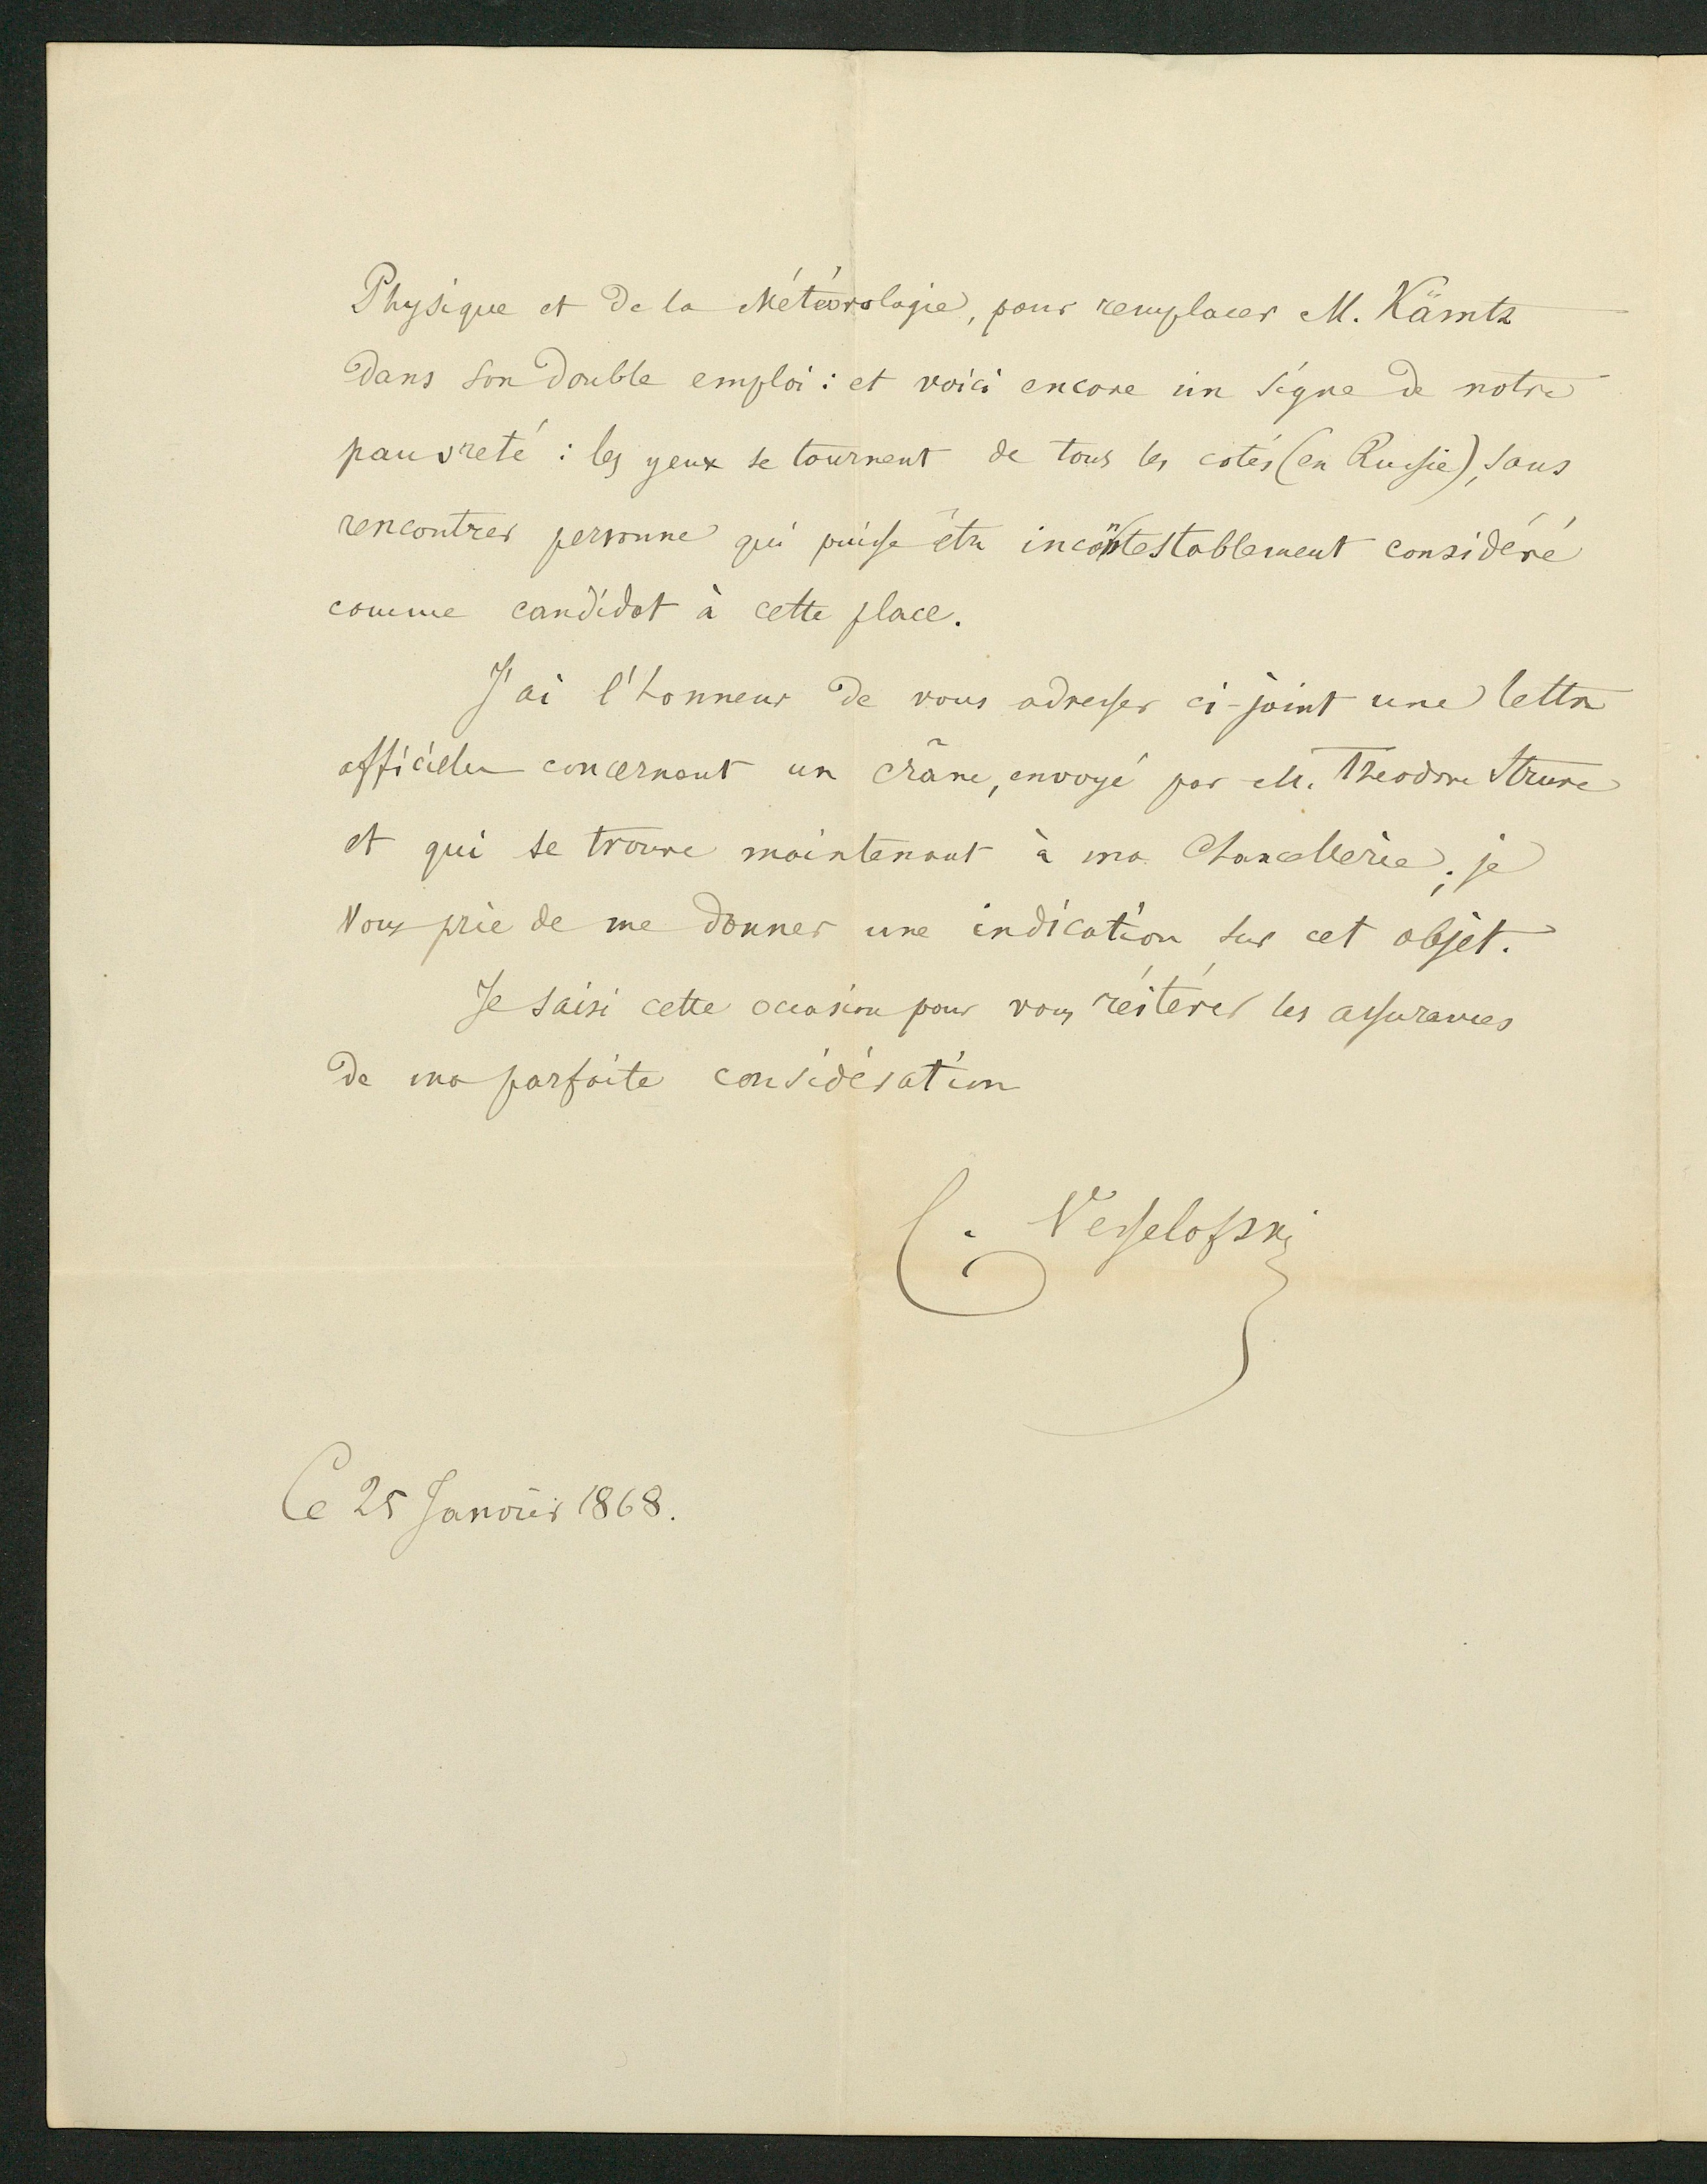 Physique et de la Météorologie, pour remplacer M. Kämtz
dans son double emploi : et voici encore un signe de notre
pauvreté : les yeux se tournent de tous les cotés (en Russie), sans
rencontrer personne qui puisse être incontestablement considéré
comme candidat à cette place.
J'ai l'honneur de vous adresser ci-joint une lettre
officielle concernant un crâne, envoyé par M. Theodore Struve
et qui se trouve maintenant à ma Chancellerie; je
Vous prie de me donner une indication sur cet objet.
Je saisi cette occasion pour vous réitérer les assurances
de ma parfaite considération
C. Vesselofski
Ce 25 Janvier 1868.